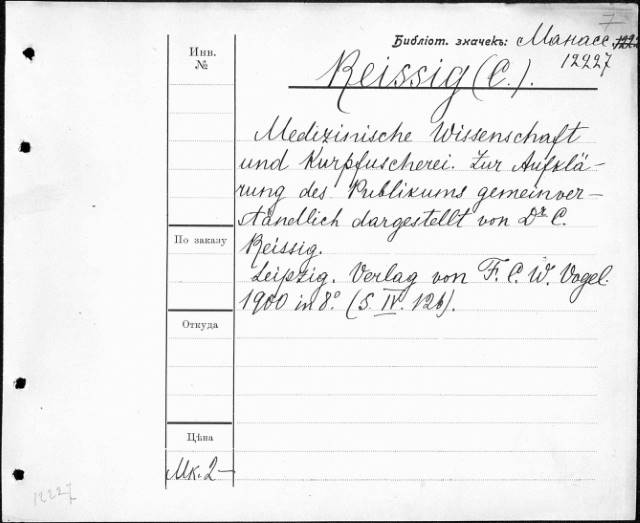 7
Библіот. значекъ: Манасс
12227
Инв.
№
Reissig (C.).
Medizinische Wissenschaft
und Kurpfuscherei. Zur Aufklä-
rung des Publikums gemeinver-
ständlich dargestellt von Dr C.
Reissig.
По заказу
Leipzig. Verlag von F. C. W. Vogel.
1900 in 8° (S. IV. 126).
Откуда
Цѣна
Мк. 2-
12227